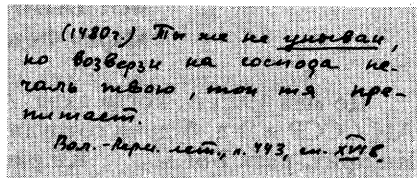 (1480г.) Ты же не унывай,
но возверзи на господа пе-
чаль твою, той тя пре-
питает.
Вол.-Перм. лет., л. 443, сп. XVI в.